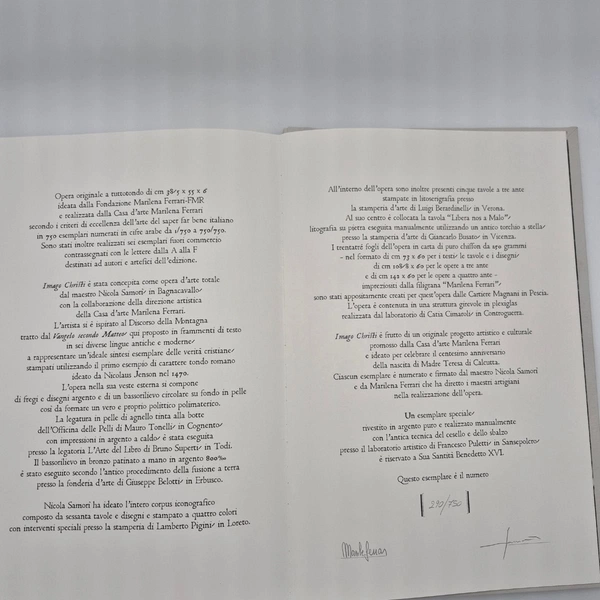 Opera originale a tuttotondo di cm 38,5 x 55 x 6
ideata dalla Fondazione Marilena Ferrari-FMR
e realizzata dalla Casa d'arte Marilena Ferrari
secondo i criteri di eccellenza dell'arte del saper far bene italiano
in 750 esemplari numerati in cifre arabe da 1/750 a 750/750.
Sono stati inoltre realizzati sei esemplari fuori commercio
contrassegnati con le lettere dalla A alla F
destinati ad autori e artefici dell'edizione.
Imago Christi è stata concepita come opera d'arte totale
dal maestro Nicola Samorì, in Bagnacavallo,
con la collaborazione della direzione artistica
della Casa d'arte Marilena Ferrari.
L'artista si è ispirato al Discorso della Montagna
tratto dal Vangelo secondo Matteo, qui proposto in frammenti di testo
in sei diverse lingue antiche e moderne,
a rappresentare un'ideale sintesi esemplare delle verità cristiane,
stampati utilizzando il primo esempio di carattere tondo romano
ideato da Nicolaus Jenson nel 1470.
L'opera nella sua veste esterna si compone
di fregi e disegni argento e di un bassorilievo circolare su fondo in pelle
così da formare un vero e proprio polittico polimaterico.
La legatura in pelle di agnello tinta alla botte
dell'Officina delle Pelli di Mauro Tonelli, in Cognento,
con impressioni in argento a caldo, è stata eseguita
presso la legatoria L'Arte del Libro di Bruno Superti, in Todi.
Il bassorilievo in bronzo patinato a mano in argento 800‰
è stato eseguito secondo l'antico procedimento della fusione a terra
presso la fonderia d'arte di Giuseppe Belotti, in Erbusco.
Nicola Samorì ha ideato l'intero corpus iconografico
composto da sessanta tavole e disegni e stampato a quattro colori
con interventi speciali presso la stamperia di Lamberto Pigini, in Loreto.
All'interno dell'opera sono inoltre presenti cinque tavole a tre ante
stampate in litoserigrafia presso
la stamperia d'arte di Luigi Berardinelli, in Verona.
Al suo centro è collocata la tavola "Libera nos a Malo",
litografia su pietra eseguita manualmente utilizzando un antico torchio a stella,
presso la stamperia d'arte di Giancarlo Busato, in Vicenza.
I trentatré fogli dell'opera in carta di puro chiffon da 250 grammi
- nel formato di cm 73 x 60 per i testi, le tavole e i disegni,
di cm 108,8 x 60 per le opere a tre ante
e di cm 142 x 60 per le opere a quattro ante -
impreziositi dalla filigrana "Marilena Ferrari",
sono stati appositamente creati per quest'opera dalle Cartiere Magnani in Pescia.
L'opera è contenuta in una struttura girevole in plexiglas
realizzata dal laboratorio di Catia Cimarosti, in Controguerra.
Imago Christi è frutto di un originale progetto artistico e culturale
promosso dalla Casa d'arte Marilena Ferrari
e ideato per celebrare il centesimo anniversario
della nascita di Madre Teresa di Calcutta.
Ciascun esemplare è numerato e firmato dal maestro Nicola Samorì
e da Marilena Ferrari che ha diretto i maestri artigiani
nella realizzazione dell'opera.
Un esemplare speciale,
rivestito in argento puro e realizzato manualmente
con l'antica tecnica del cesello e dello sbalzo
presso il laboratorio artistico di Francesco Puletti, in Sansepolcro,
è riservato a Sua Santità Benedetto XVI.
Questo esemplare è il numero
290/750